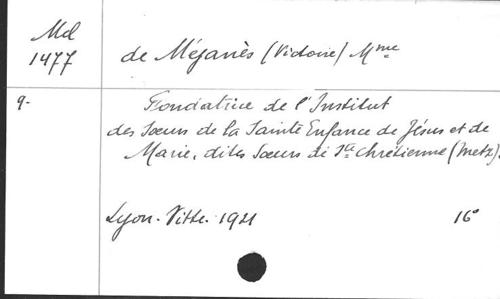 Md
1477
de Méjanès (Victoire) Mme
9.
Fondatrice de l'Institut
des Sœurs de la Sainte Enfance de Jésus et de
Marie, dites Sœurs de Ste Chrétienne (Metz).
Lyon. Vitte. 1921 16°